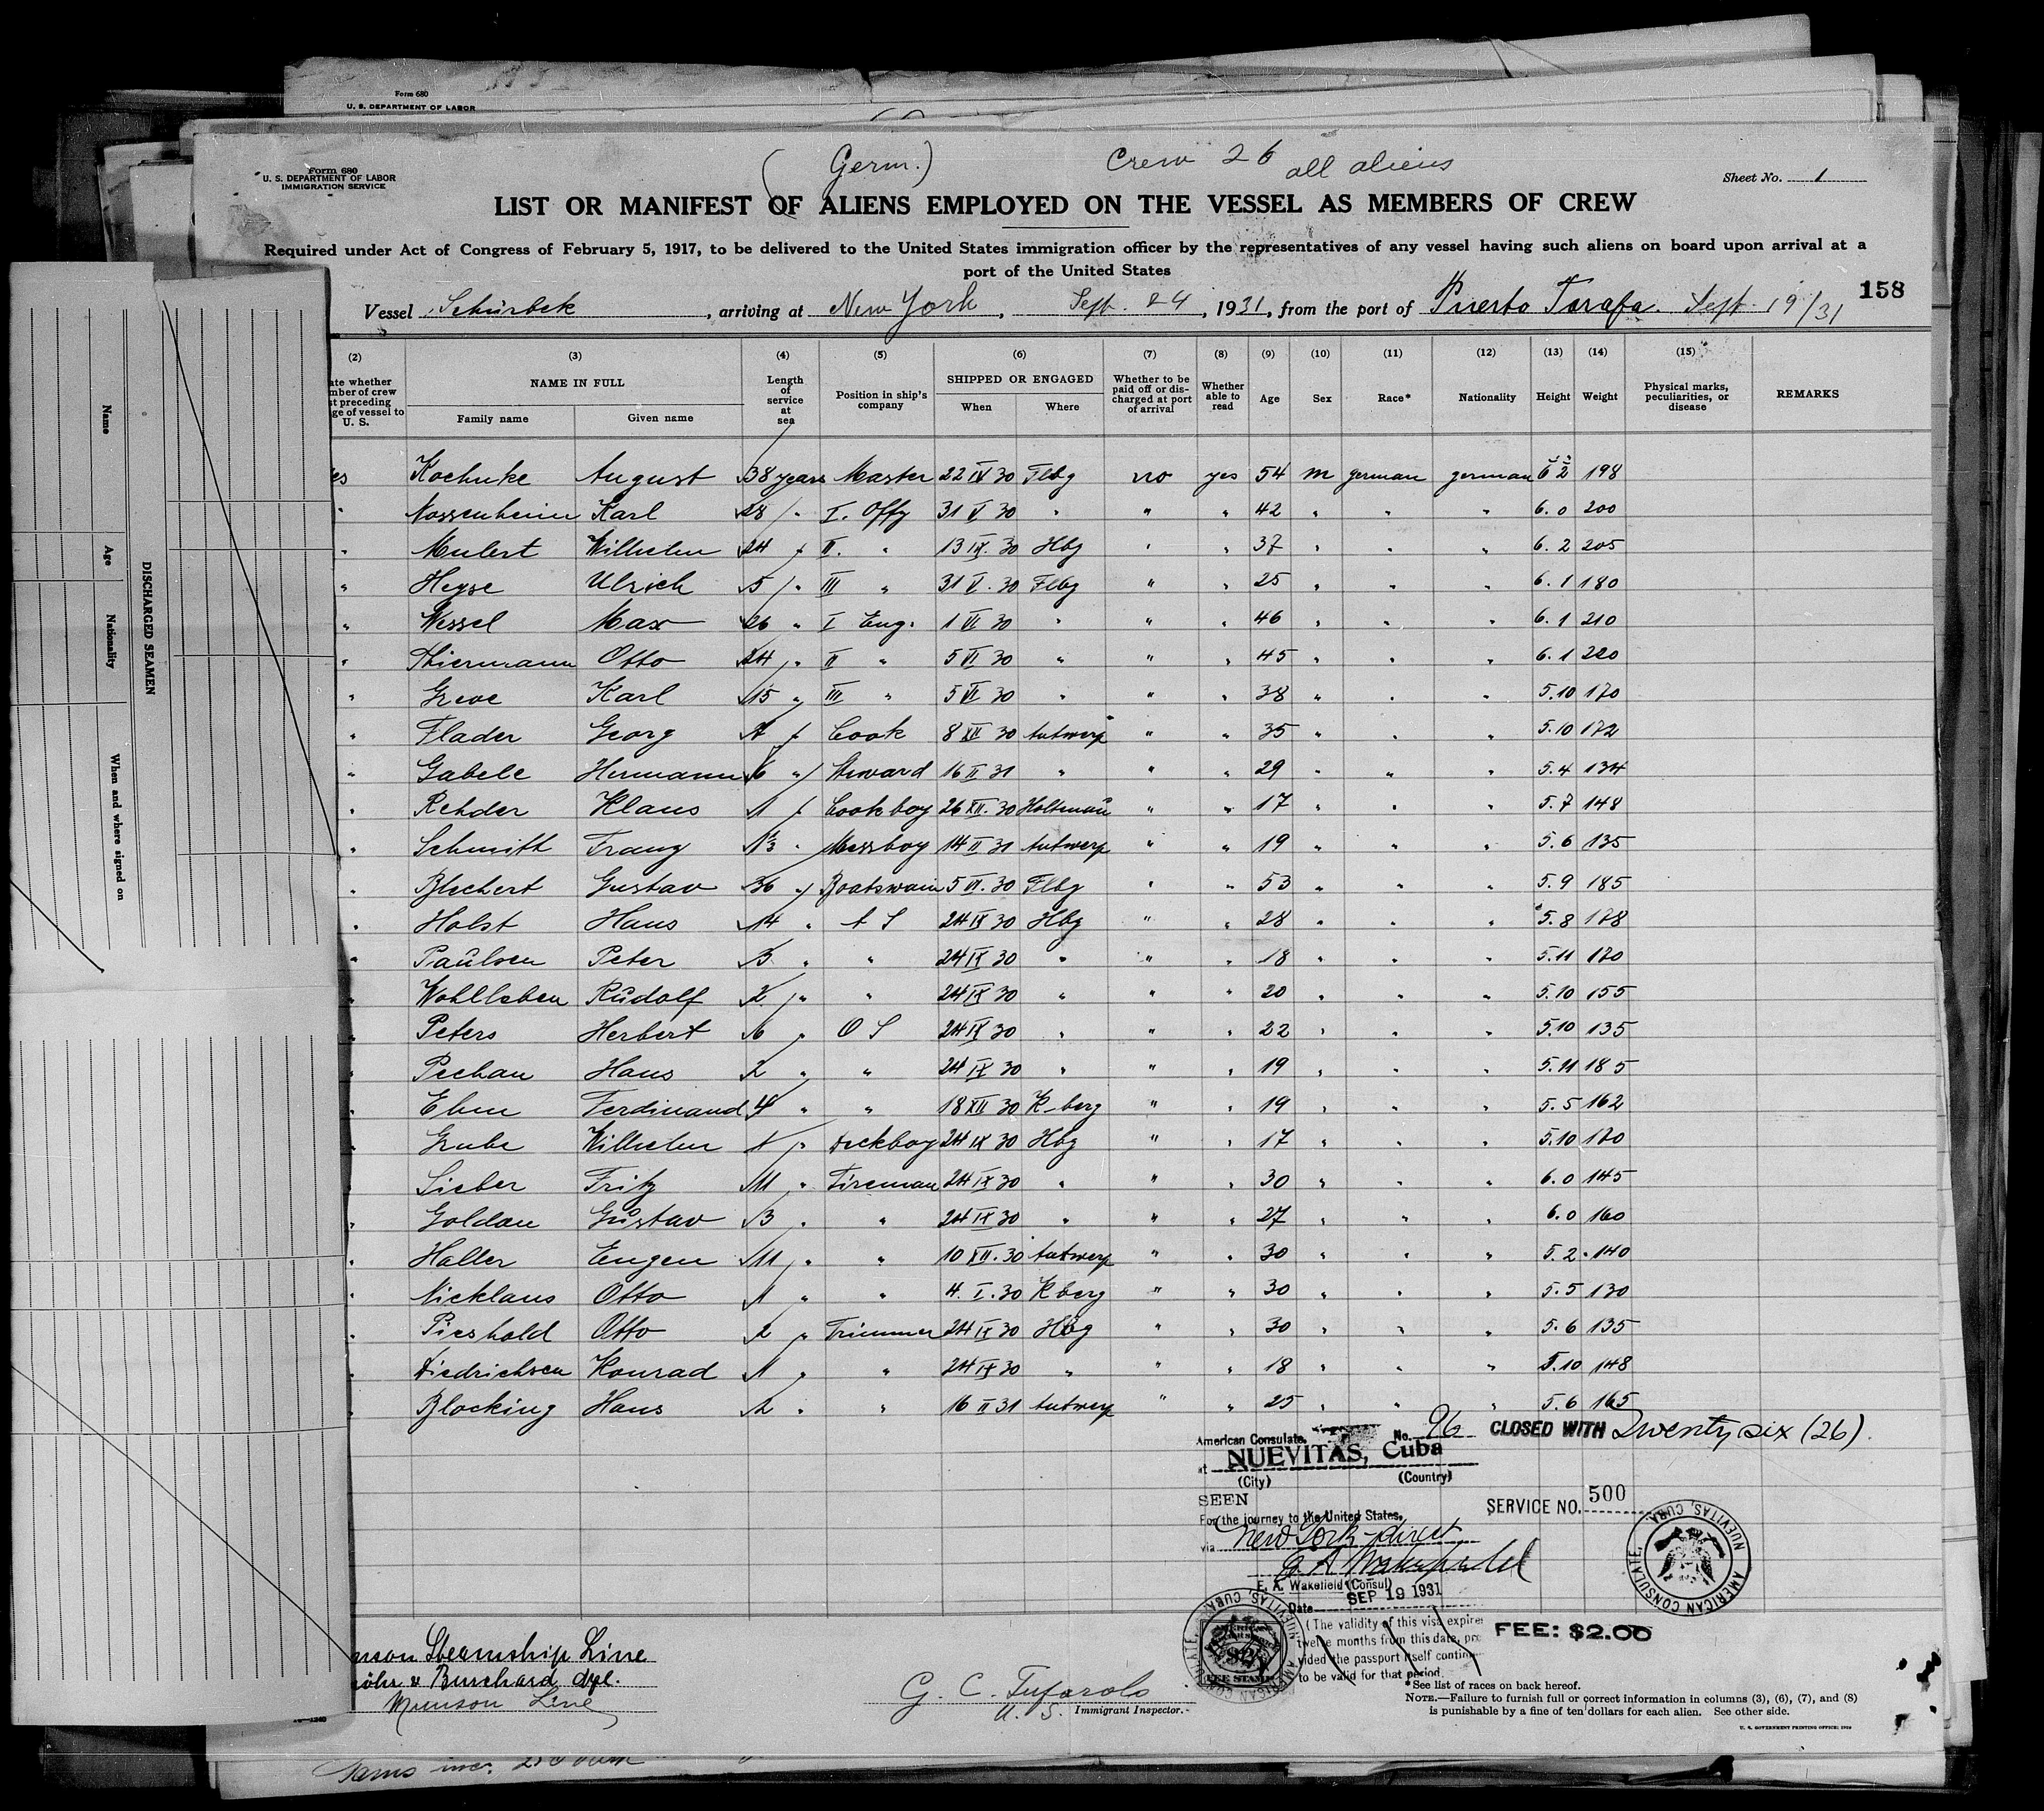 Form 680
U. S. DEPARTMENT OF LABOR
(Germ.) Crew 26 all aliens
Form 680
U. S. DEPARTMENT OF LABOR
IMMIGRATION SERVICE
Sheet No. 1
LIST OR MANIFEST OF ALIENS EMPLOYED ON THE VESSEL AS MEMBERS OF CREW
Required under Act of Congress of February 5, 1917, to be delivered to the United States immigration officer by the representatives of any vessel having such aliens on board upon arrival at a
port of the United States
158
Vessel Schürbek, arriving at New York, Sept. 24, 1931, from the port of Puerto Tarafa. Sept 19/31
(2) (3) (4) (5) (6) (7) (8) (9) (10) (11) (12) (13) (14) (15)
ate whether
mber of crew
t preceding
ge of vessel to
U. S.
NAME IN FULL
Family name Given name
Length
of
service
at
sea
Position in ship's
company
SHIPPED OR ENGAGED
When Where
Whether to be
paid off or dis-
charged at port
of arrival
Whether
able to
read
Age Sex Race* Nationality Height Weight
Physical marks,
peculiarities, or
disease
REMARKS
es Kochnke August 38 years Master 22 IV 30 Flbg no yes 54 m german german 6 2 198
" Nossenheim Karl 28 " I. Offz 31 V 30 " " " 42 " " " 6.0 200
" Mulert Wilhelm 24 " II. " 13 IX. 30 Hbg " " 37 " " " 6.2 205
" Heyse Ulrich 5 " III " 31 V. 30 Flbg " " 25 " " " 6.1 180
" Wessel Max 26 " I Eng. 1 VI 30 " " " 46 " " " 6.1 210
" Thiermann Otto 24 " II " 5 VI 30 " " " 45 " " " 6.1 220
" Greve Karl 15 " III " 5 VI 30 " " " 38 " " " 5.10 170
" Flader Georg 1 " Cook 8 XII 30 Antwerp " " 35 " " " 5.10 172
" Gabele Hermann 6 " Steward 16 II 31 " " " 29 " " " 5.4 134
" Rehder Klaus 1 " Cooksboy 26 XII. 30 Holtenau " " 17 " " " 5.7 148
" Schmith Franz 1½ " Messboy 14 II 31 Antwerp " " 19 " " " 5.6 135
" Blechert Gustav 36 " Boatswain 5 VI. 30 Flbg " " 53 " " " 5.9 185
" Holst Hans 14 " A S 24 IX 30 Hbg " " 28 " " " 5.8 178
" Paulsen Peter 3 " " 24 IX 30 " " " 18 " " " 5.11 170
" Wohlleben Rudolf 2 " " 24 IX 30 " " " 20 " " " 5.10 155
" Peters Herbert 6 " O S 24 IX 30 " " " 22 " " " 5.10 135
" Pechan Hans 2 " " 24 IX 30 " " " 19 " " " 5.11 185
" Ehm Ferdinand 4 " " 18 XII 30 K-berg " " 19 " " " 5.5 162
" Grube Wilhelm 1 " Deckboy 24 IX 30 Hbg " " 17 " " " 5.10 170
" Sieber Fritz 11 " Fireman 24 IX 30 " " " 30 " " " 6.0 145
" Goldau Gustav 3 " " 24 IX 30 " " " 27 " " " 6.0 160
" Haller Eugen 11 " " 10 XII. 30 Antwerp " " 30 " " " 5.2 140
" Nicklaus Otto 1 " " 4. I. 30 Kberg " " 30 " " " 5.5 130
" Pieshold Otto 2 " Trimmer 24 IX 30 Hbg " " 30 " " " 5.6 135
" Diedrichsen Konrad 1 " " 24 IX 30 " " " 18 " " " 5.10 148
" Blocking Hans 2 " " 16 II 31 Antwerp " " 25 " " " 5.6 165
American Consulate, No. 96 CLOSED WITH Twenty six (26).
at NUEVITAS, Cuba
(City) (Country)
SEEN
SERVICE NO. 500
For the journey to the United States.
via New York - direct
E. A. Wakefield
E. A. Wakefield (Consul)
Date SEP 19 1931
(The validity of this visa expires
twelve months from this date, pro
vided the passport itself contin
to be valid for that period.
FEE: $2.00
AMERICAN CONSULATE, NUEVITAS, CUBA
AMERICAN CONSULATE, NUEVITAS, CUBA
FEE STAMP
nson Steamship Line
öhr & Burchard, dpl.
Munson Line
G. C. Tufarolo
U. S. Immigrant Inspector.
*See list of races on back hereof.
NOTE.—Failure to furnish full or correct information in columns (3), (6), (7), and (8)
is punishable by a fine of ten dollars for each alien. See other side.
U. S. GOVERNMENT PRINTING OFFICE: 1930
DISCHARGED SEAMEN
Name Age Nationality When and where signed on